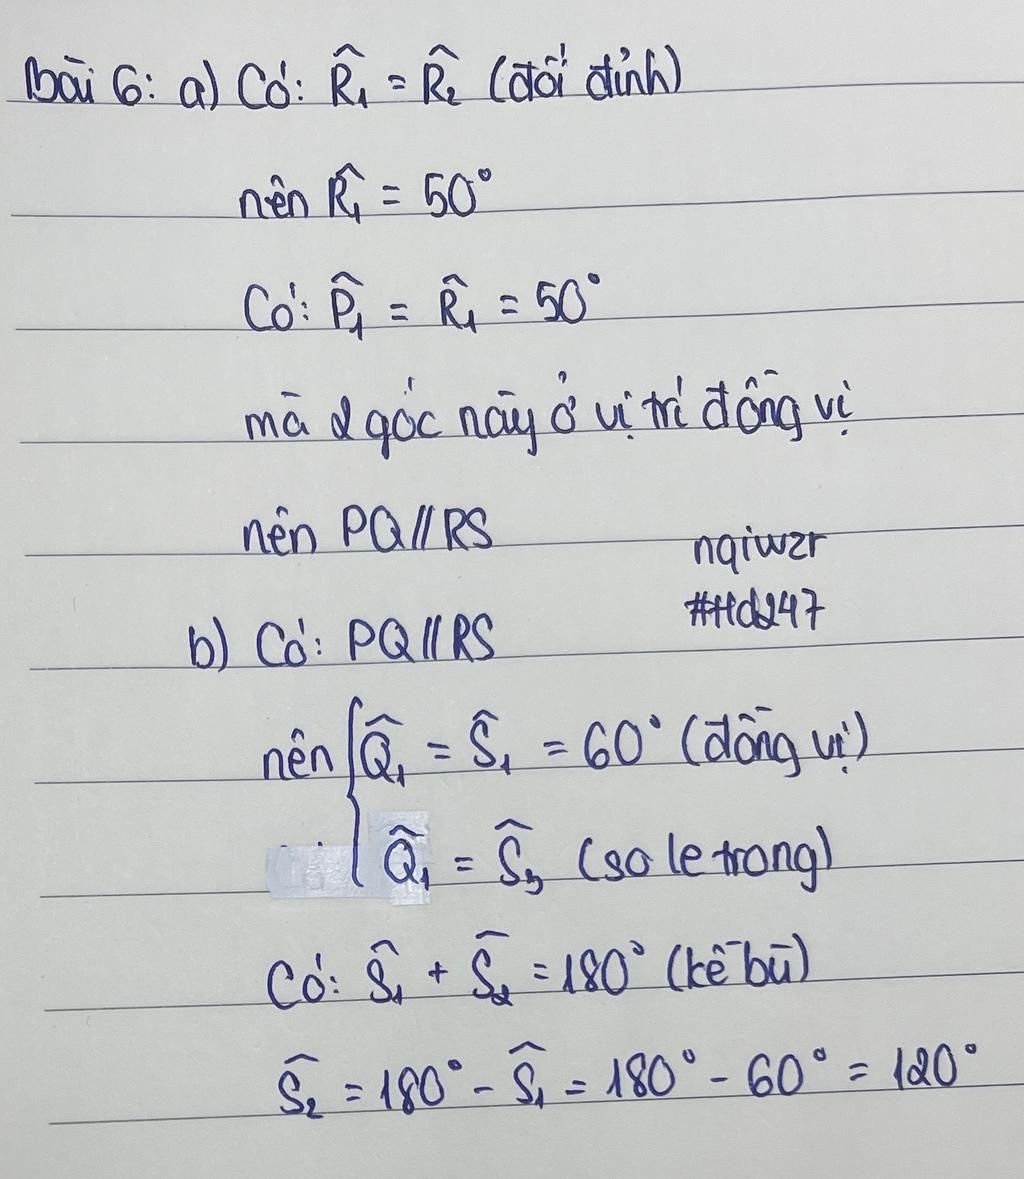 Bài 6: a) Có: R̂₁ = R̂₂ (đối đỉnh)
nên R̂₁ = 50°
Có: P̂₁ = R̂₁ = 50°
mà 2 góc này ở vị trí đồng vị
nên PQ // RS
nqiwzr
#Hd247
b) Có: PQ // RS
nên { Q̂₁ = Ŝ₁ = 60° (đồng vị)
Q̂₁ = Ŝ₃ (so le trong)
Có: Ŝ₁ + Ŝ₂ = 180° (kề bù)
Ŝ₂ = 180° - Ŝ₁ = 180° - 60° = 120°